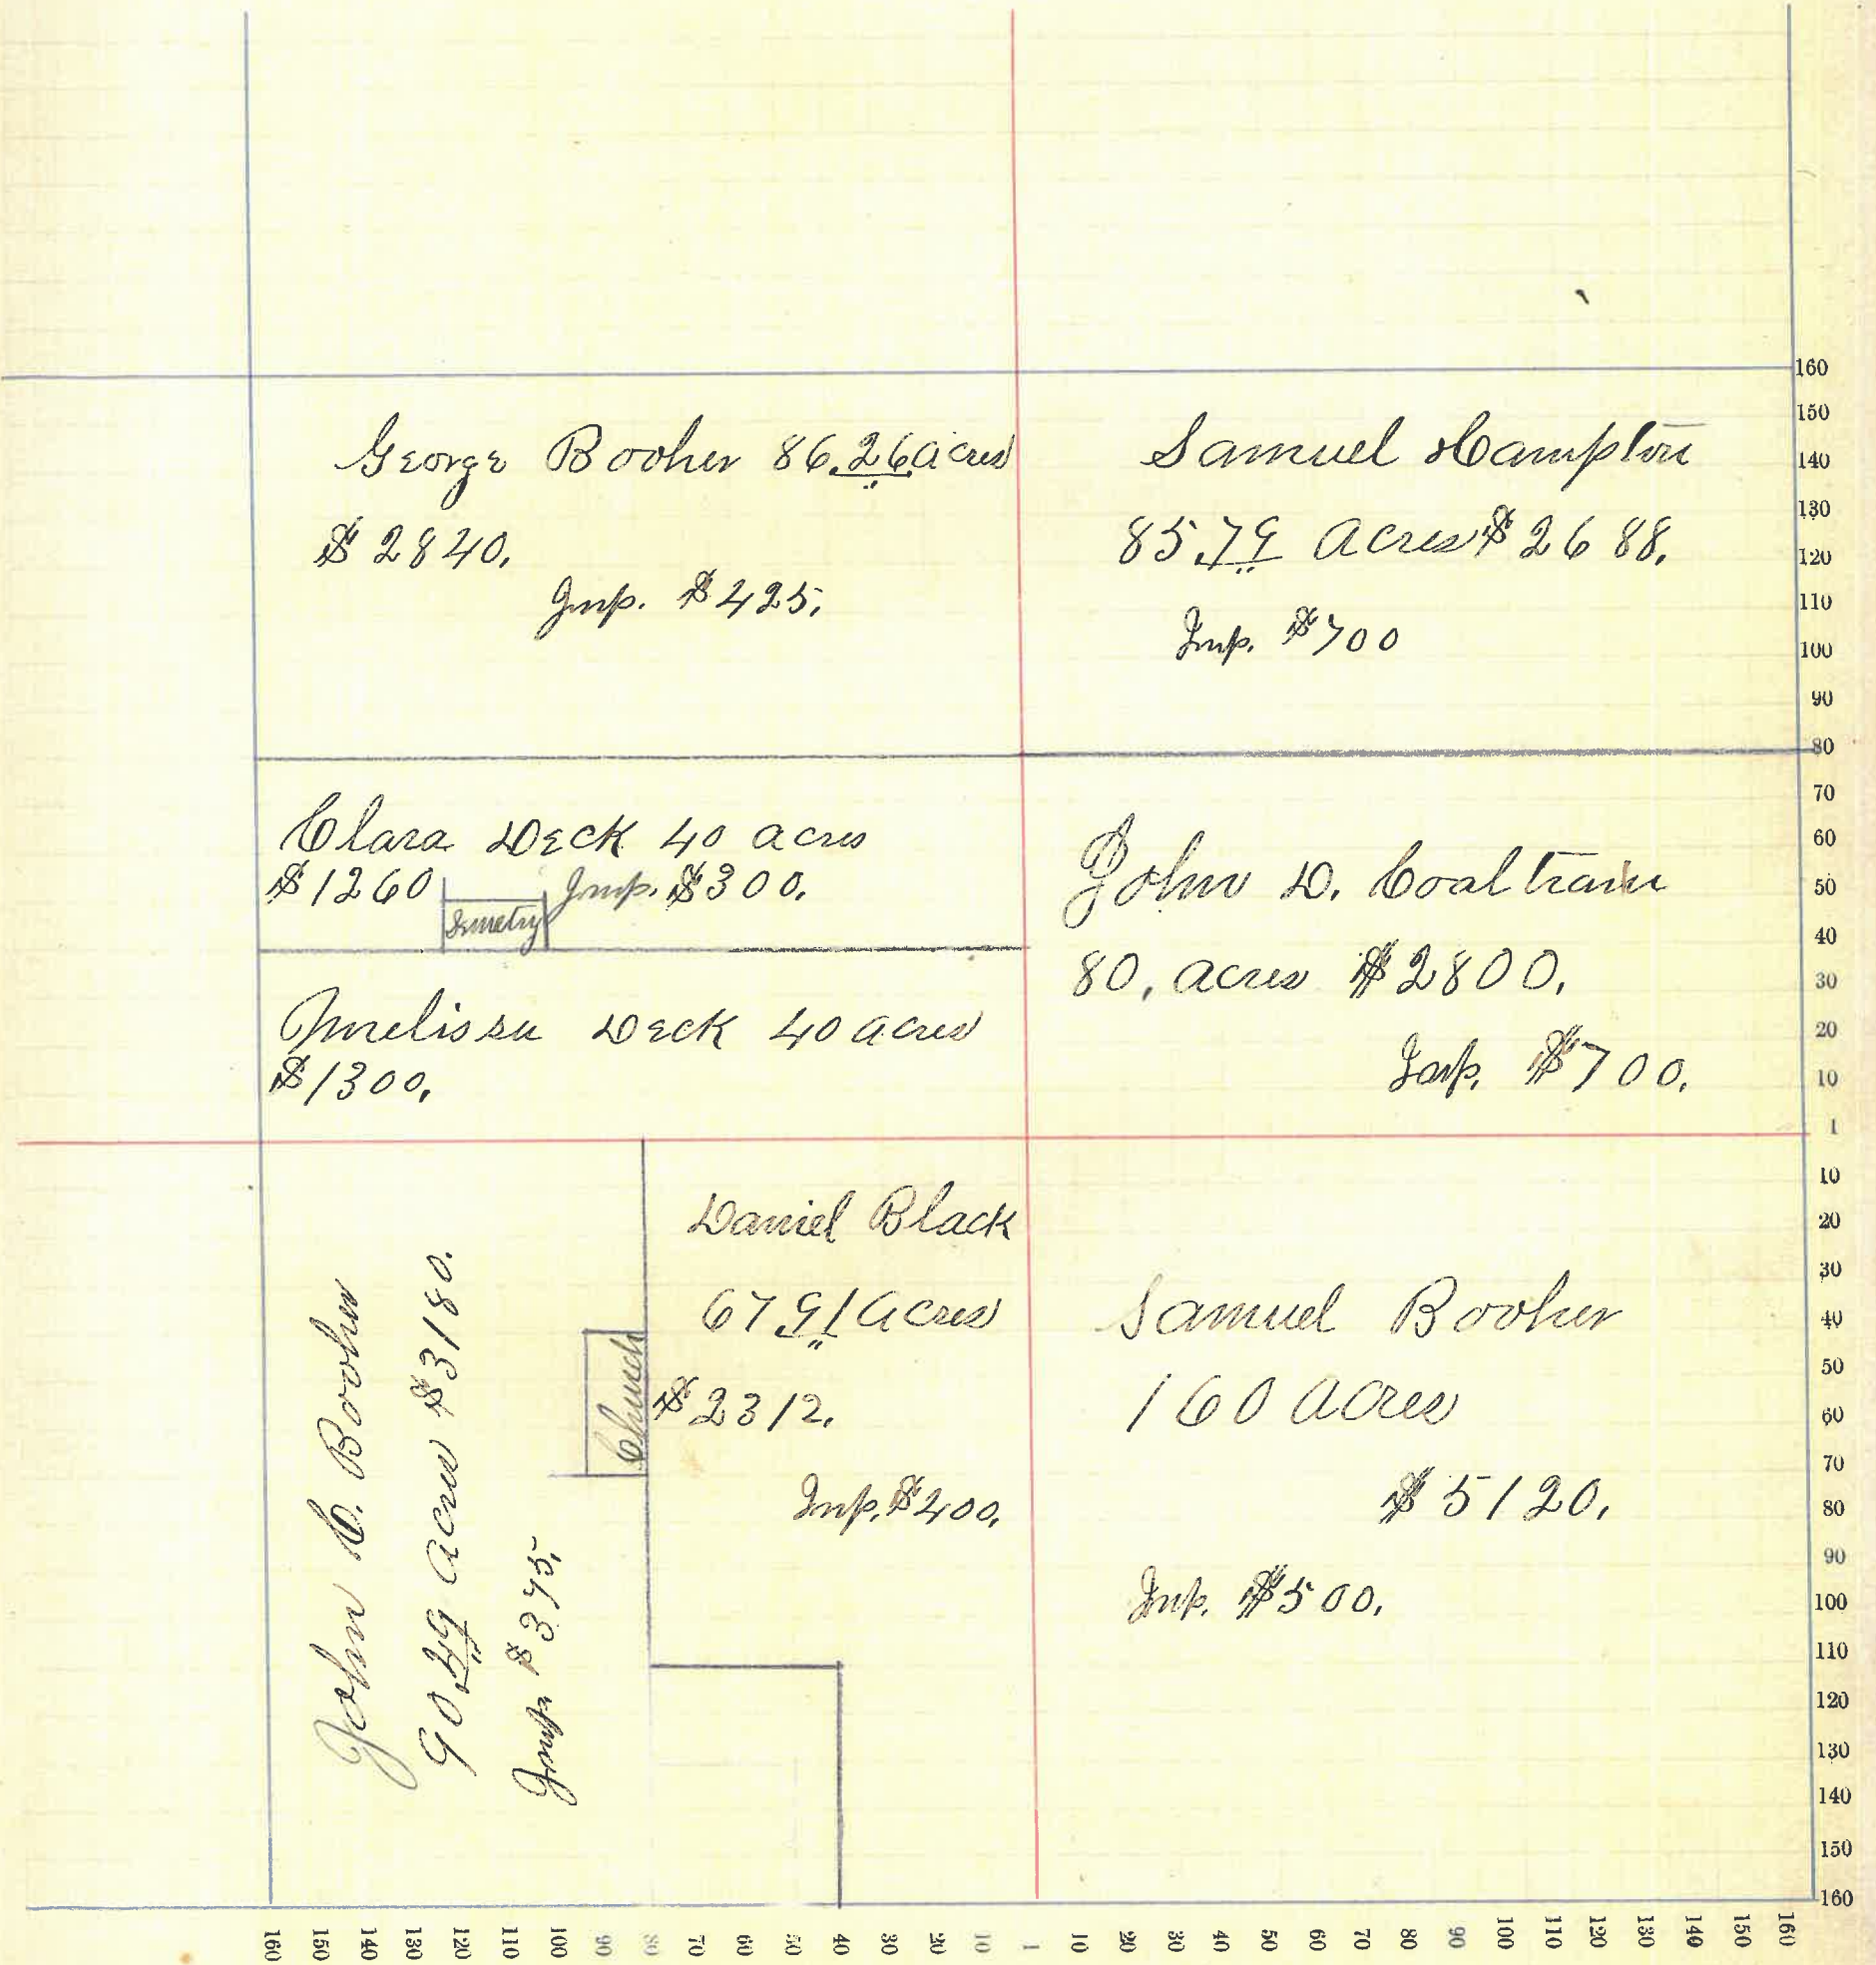 George Booher 86.26 acres
$2840.
Imp. $425.
Samuel Hampton
85.79 Acres $2688.
Imp. $700
Clara Deck 40 acres
$1260 Imp. $300.
Semetry
Melissa Deck 40 acres
$1300.
John D. Coaltrain
80, acres $2800.
Imp. $700.
John C. Booher
90.49 Acres $3180.
Imp. $375.
Church
Daniel Black
67.91 Acres
$2312.
Imp. $400.
Samuel Booher
160 Acres
$5120.
Imp. $500.
160
150
140
130
120
110
100
90
80
70
60
50
40
30
20
10
1
10
20
30
40
50
60
70
80
90
100
110
120
130
140
150
160
160 150 140 130 120 110 100 90 80 70 60 50 40 30 20 10 1 10 20 30 40 50 60 70 80 90 100 110 120 130 140 150 160